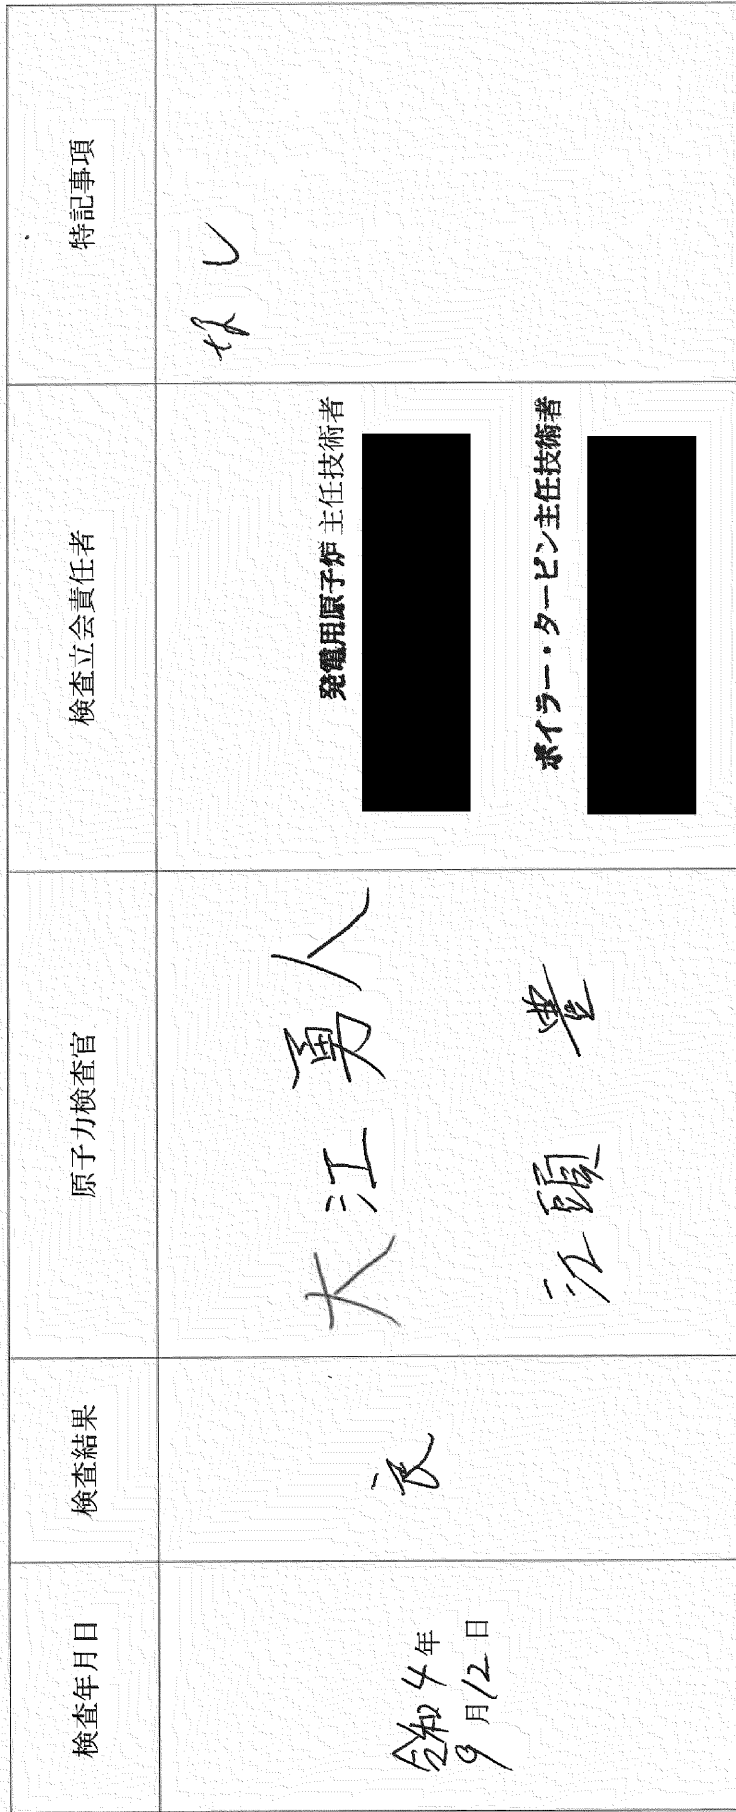 検査年月日
検査結果
原子力検査官
検査立会責任者
特記事項
令和4年
9月12日
良
大江勇人
江頭 豊
発電用原子炉 主任技術者
ボイラー・タービン主任技術者
なし